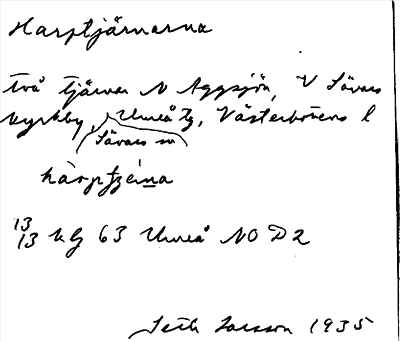 Harptjärnarna
två tjärnar N Aggsjön, V Sävars
kyrkby, Umeå tg, Västerbottens l
Sävars sn
13/13 Kbl 63 Umeå NO D2
Seth Larsson 1935